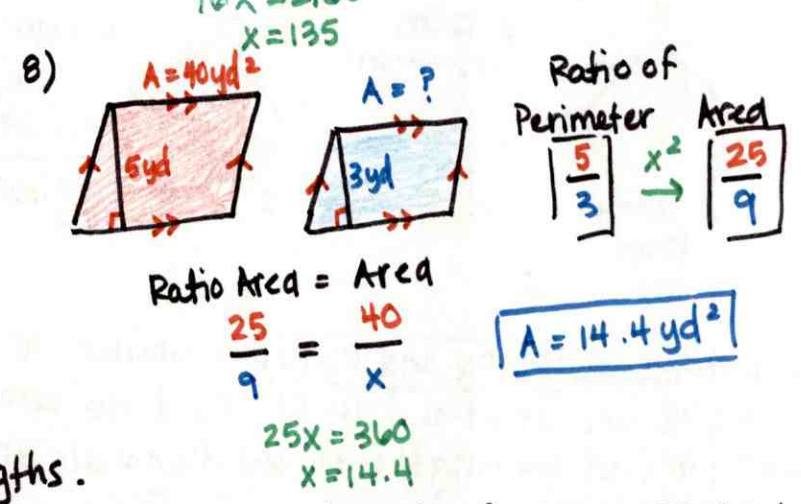 x=135
8)
A=40yd²
A=?
5yd
3yd
Ratio of
Perimeter Area
5/3 x² → 25/9
Ratio Area = Area
25/9 = 40/x
A=14.4yd²
25x=360
x=14.4
gths.